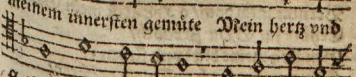 meinem innersten gemüte Mein hertz vnd